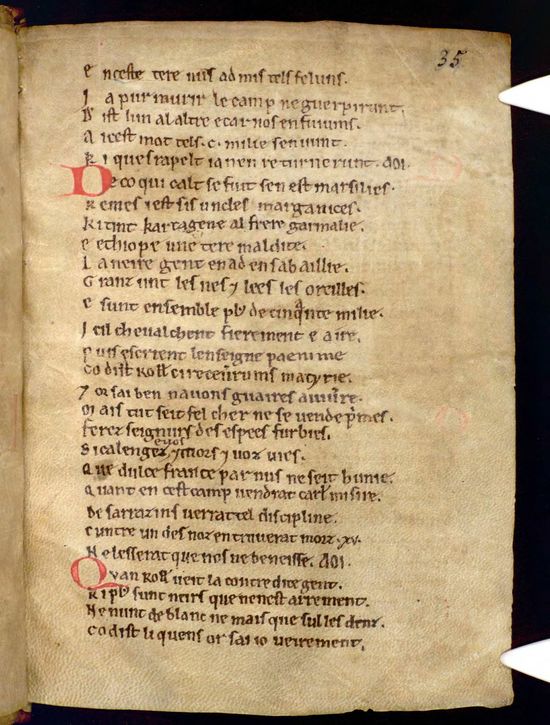 35
E nceste tere nus ad mis tels feluns.
J a pur murir le camp ne guerpirunt.
D ist lun al altre e car nos en fuiums.
A icest mot tels .c. milie senvunt.
K i ques rapelt ia nen returnerunt. AOI.
De co qui calt se fuit sen est marsilies.
R emes i est sis uncles marganices.
K i tint kartagene al frere garmalie.
E ethiope une tere maldite.
L a neire gent en ad en sa baillie.
G ranz unt les nes ⁊ lees les oreilles.
E sunt ensemble pl' de cinq̃nte milie.
I cil chevalchent fierement e a ire.
P uis escrient lenseigne paenime
Co dist Roll ci recevrums matyrie.
⁊ or sai ben navons guaires a vivre.
Mais tut seit fel cher ne se vende p̃mes.
Ferez seignurs des espees furbies.
Si calengez evoz ⁊ mors ⁊ voz vies.
Que dulce france par nus ne seit hunie.
Quant en cest camp vendrat carl' mi sire.
De sarrazins verrat tel discipline.
Cuntre un des noz en truverat morz .xv.
Ne lesserat que nos ne beneisse. AOI.
Quan Roll veit la contredite gent.
Ki pl' sunt neirs que nen est arrement.
Ne nunt de blanc ne mais que sul les denz.
Co dist li quens or sai io veirement.